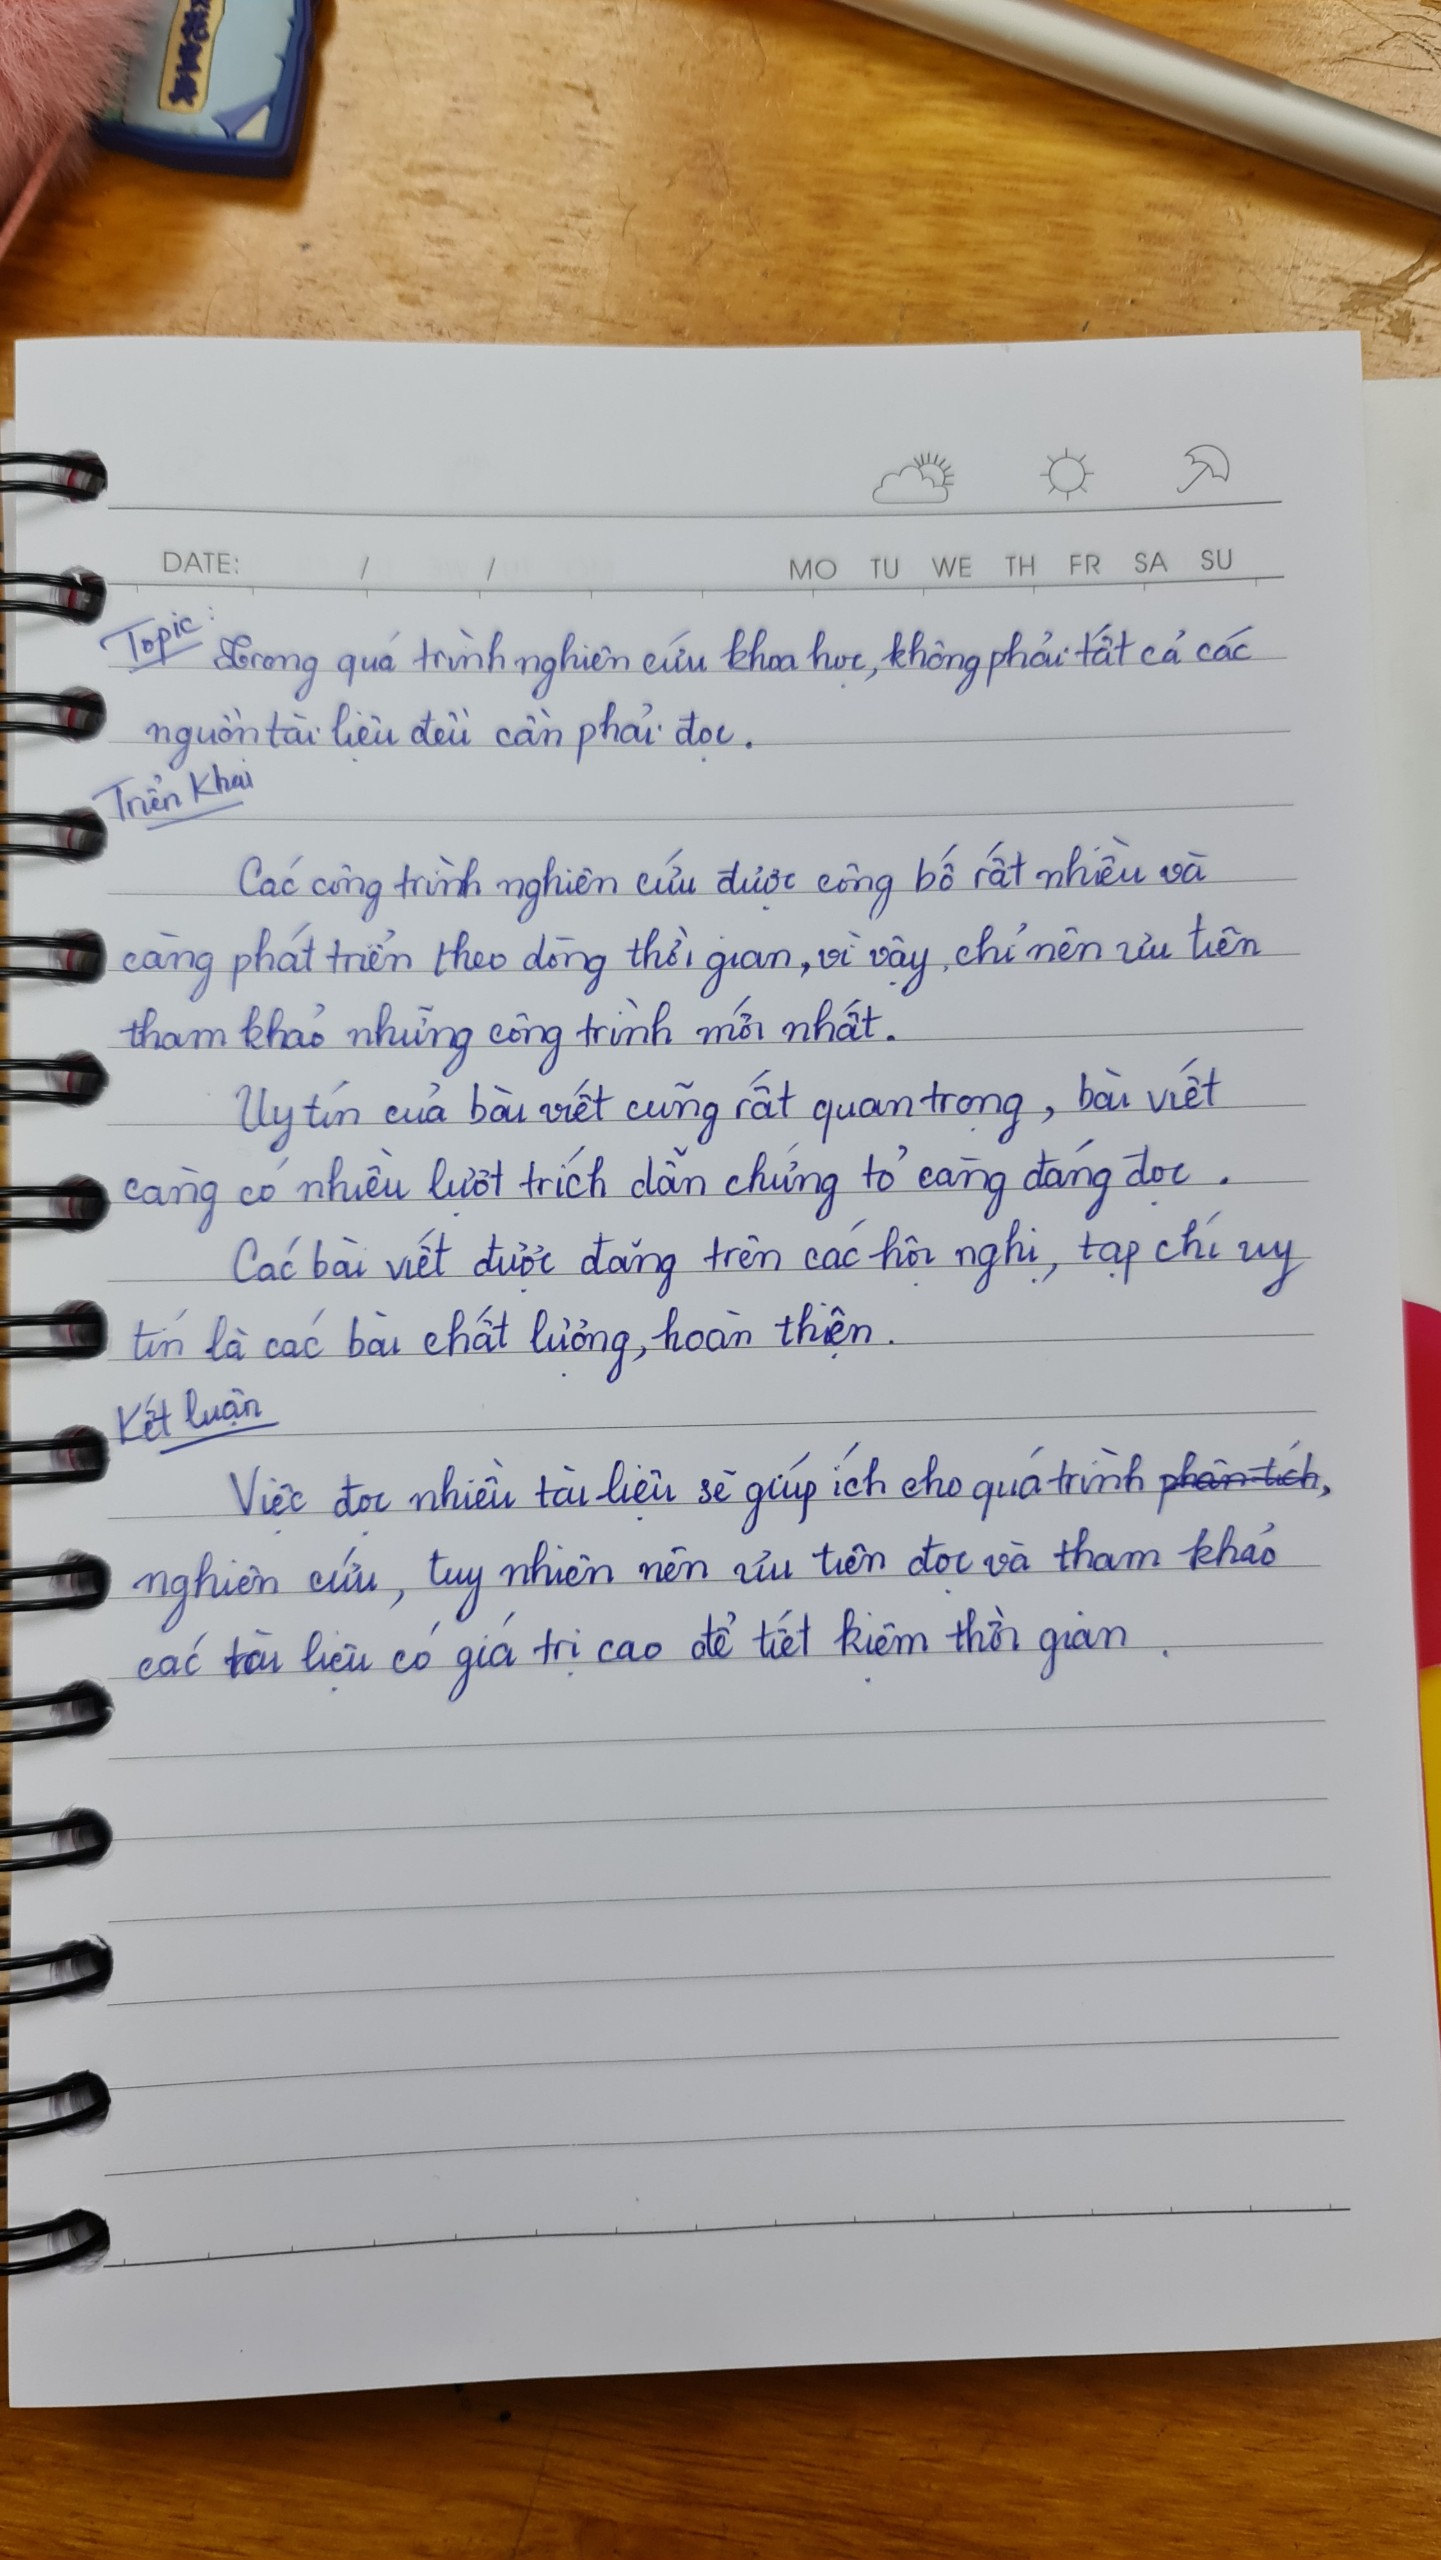 DATE: / / MO TU WE TH FR SA SU
Topic: Trong quá trình nghiên cứu khoa học, không phải tất cả các
nguồn tài liệu đều cần phải đọc.
Triển khai
Các công trình nghiên cứu được công bố rất nhiều và
càng phát triển theo dòng thời gian, vì vậy, chỉ nên ưu tiên
tham khảo những công trình mới nhất.
Uy tín của bài viết cũng rất quan trọng, bài viết
càng có nhiều lượt trích dẫn chứng tỏ càng đáng đọc.
Các bài viết được đăng trên các hội nghị, tạp chí uy
tín là các bài chất lượng, hoàn thiện.
Kết luận
Việc đọc nhiều tài liệu sẽ giúp ích cho quá trình phân tích,
nghiên cứu, tuy nhiên nên ưu tiên đọc và tham khảo
các tài liệu có giá trị cao để tiết kiệm thời gian.